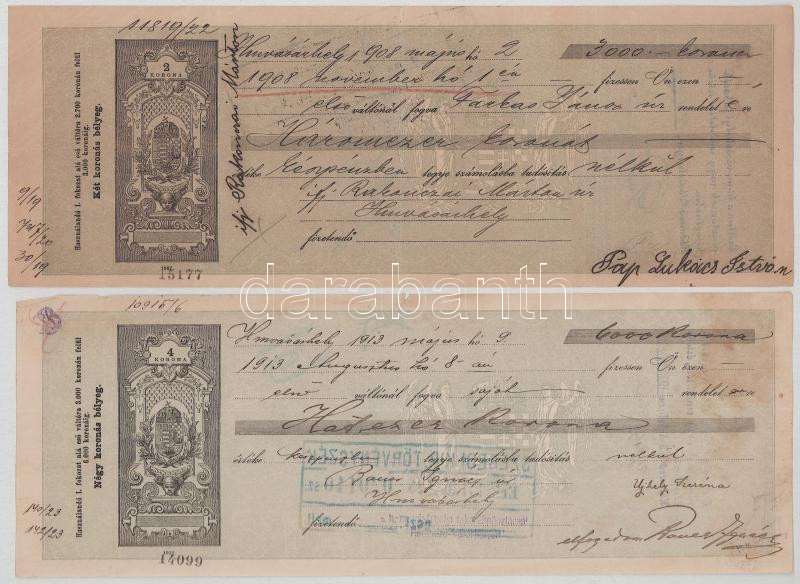 11819/22
2
KORONA
Használandó I. fokozat alá eső váltóra 2.700 koronán felül
3.000 koronáig.
Két koronás bélyeg.
15177
9/19
30/19
ifj Rakonczai Márton
Hmvásárhely 1908 május hó 2
3000.— korona
1908 november hó 1 én — fizessen Ön ezen —
első váltónál fogva Farkas János úr rendelete
Háromezer koronát
Készpénzben tegye számolásba tudósítás nélkül
ifj Rakonczai Márton úr
Hmvásárhely
fizetendő
Pap Lukács István
darabanth
10915/6
4
KORONA
Használandó I. fokozat alá eső váltóra 3.000 koronán felül
6.000 koronáig.
Négy koronás bélyeg.
14099
140/23
142/23
Hmvásárhely 1913 május hó 9
6000 Korona
1913 Augusztus hó 8-án fizessen Ön ezen —
első váltónál fogva saját rendelet
Hatezer Korona
értéke készpénzben tegye számolásba tudósítás nélkül
Bauer Ignácz úr
Hmvásárhely
fizetendő
Ujhely Szeréna
elfogadom Bauer Ignácz